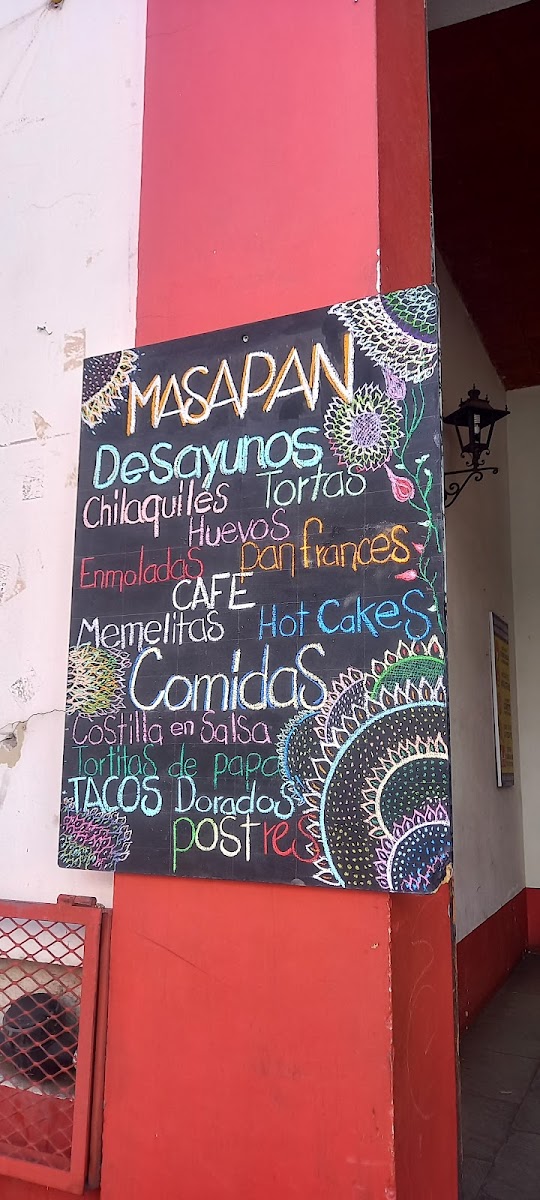 MASAPAN
Desayunos
Chilaquiles Tortas
Huevos
Enmoladas pan frances
CAFE
Memelitas Hot cakes
Comidas
Costilla en Salsa
Tortitas de papa
TACOS Dorados
postres